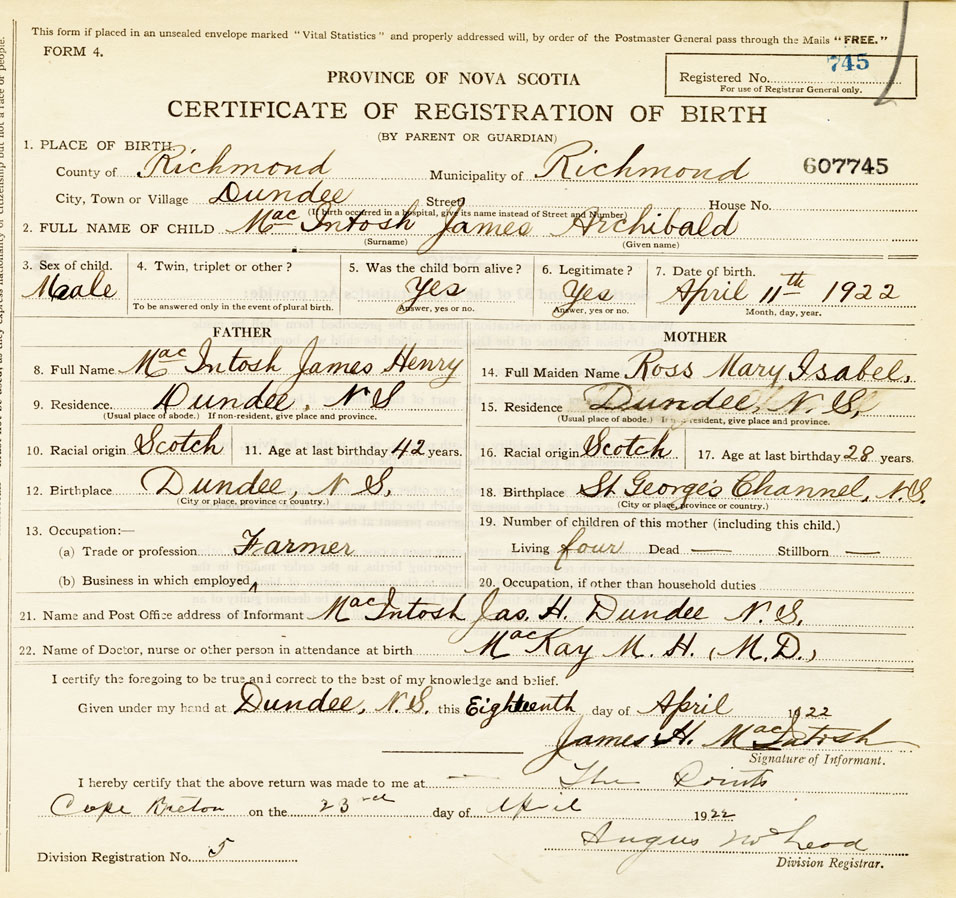 This form if placed in an unsealed envelope marked "Vital Statistics" and properly addressed will, by order of the Postmaster General pass through the Mails "FREE."
FORM 4.
745
Registered No.
For use of Registrar General only.
PROVINCE OF NOVA SCOTIA
CERTIFICATE OF REGISTRATION OF BIRTH
(BY PARENT OR GUARDIAN)
1. PLACE OF BIRTH.
County of Richmond Municipality of Richmond 607745
City, Town or Village Dundee Street House No.
(If birth occurred in a hospital, give its name instead of Street and Number)
2. FULL NAME OF CHILD MacIntosh James Archibald
(Surname) (Given name)
3. Sex of child. 4. Twin, triplet or other? 5. Was the child born alive? 6. Legitimate? 7. Date of birth.
Male Yes Yes April 11th 1922
To be answered only in the event of plural birth. Answer, yes or no. Answer, yes or no. Month, day, year.
FATHER
8. Full Name MacIntosh James Henry
9. Residence. Dundee, N S
(Usual place of abode.) If non-resident, give place and province.
10. Racial origin Scotch 11. Age at last birthday 42 years.
12. Birthplace Dundee, N S.
(City or place, province or country.)
13. Occupation:—
(a) Trade or profession Farmer
(b) Business in which employed
MOTHER
14. Full Maiden Name Ross Mary Isabel,
15. Residence Dundee, N. S,
(Usual place of abode.) If non-resident, give place and province.
16. Racial origin Scotch 17. Age at last birthday 28 years.
18. Birthplace St George's Channel, N.S.
(City or place, province or country.)
19. Number of children of this mother (including this child.)
Living four Dead — Stillborn —
20. Occupation, if other than household duties
21. Name and Post Office address of Informant MacIntosh Jas. H. Dundee N. S.
22. Name of Doctor, nurse or other person in attendance at birth MacKay M. H. (M.D.)
I certify the foregoing to be true and correct to the best of my knowledge and belief.
Given under my hand at Dundee, N.S. this Eighteenth day of April 1922
James H. MacIntosh
Signature of Informant.
I hereby certify that the above return was made to me at The Points
Cape Breton on the 23rd day of April 1922
Angus McLeod
Division Registrar.
Division Registration No. 5